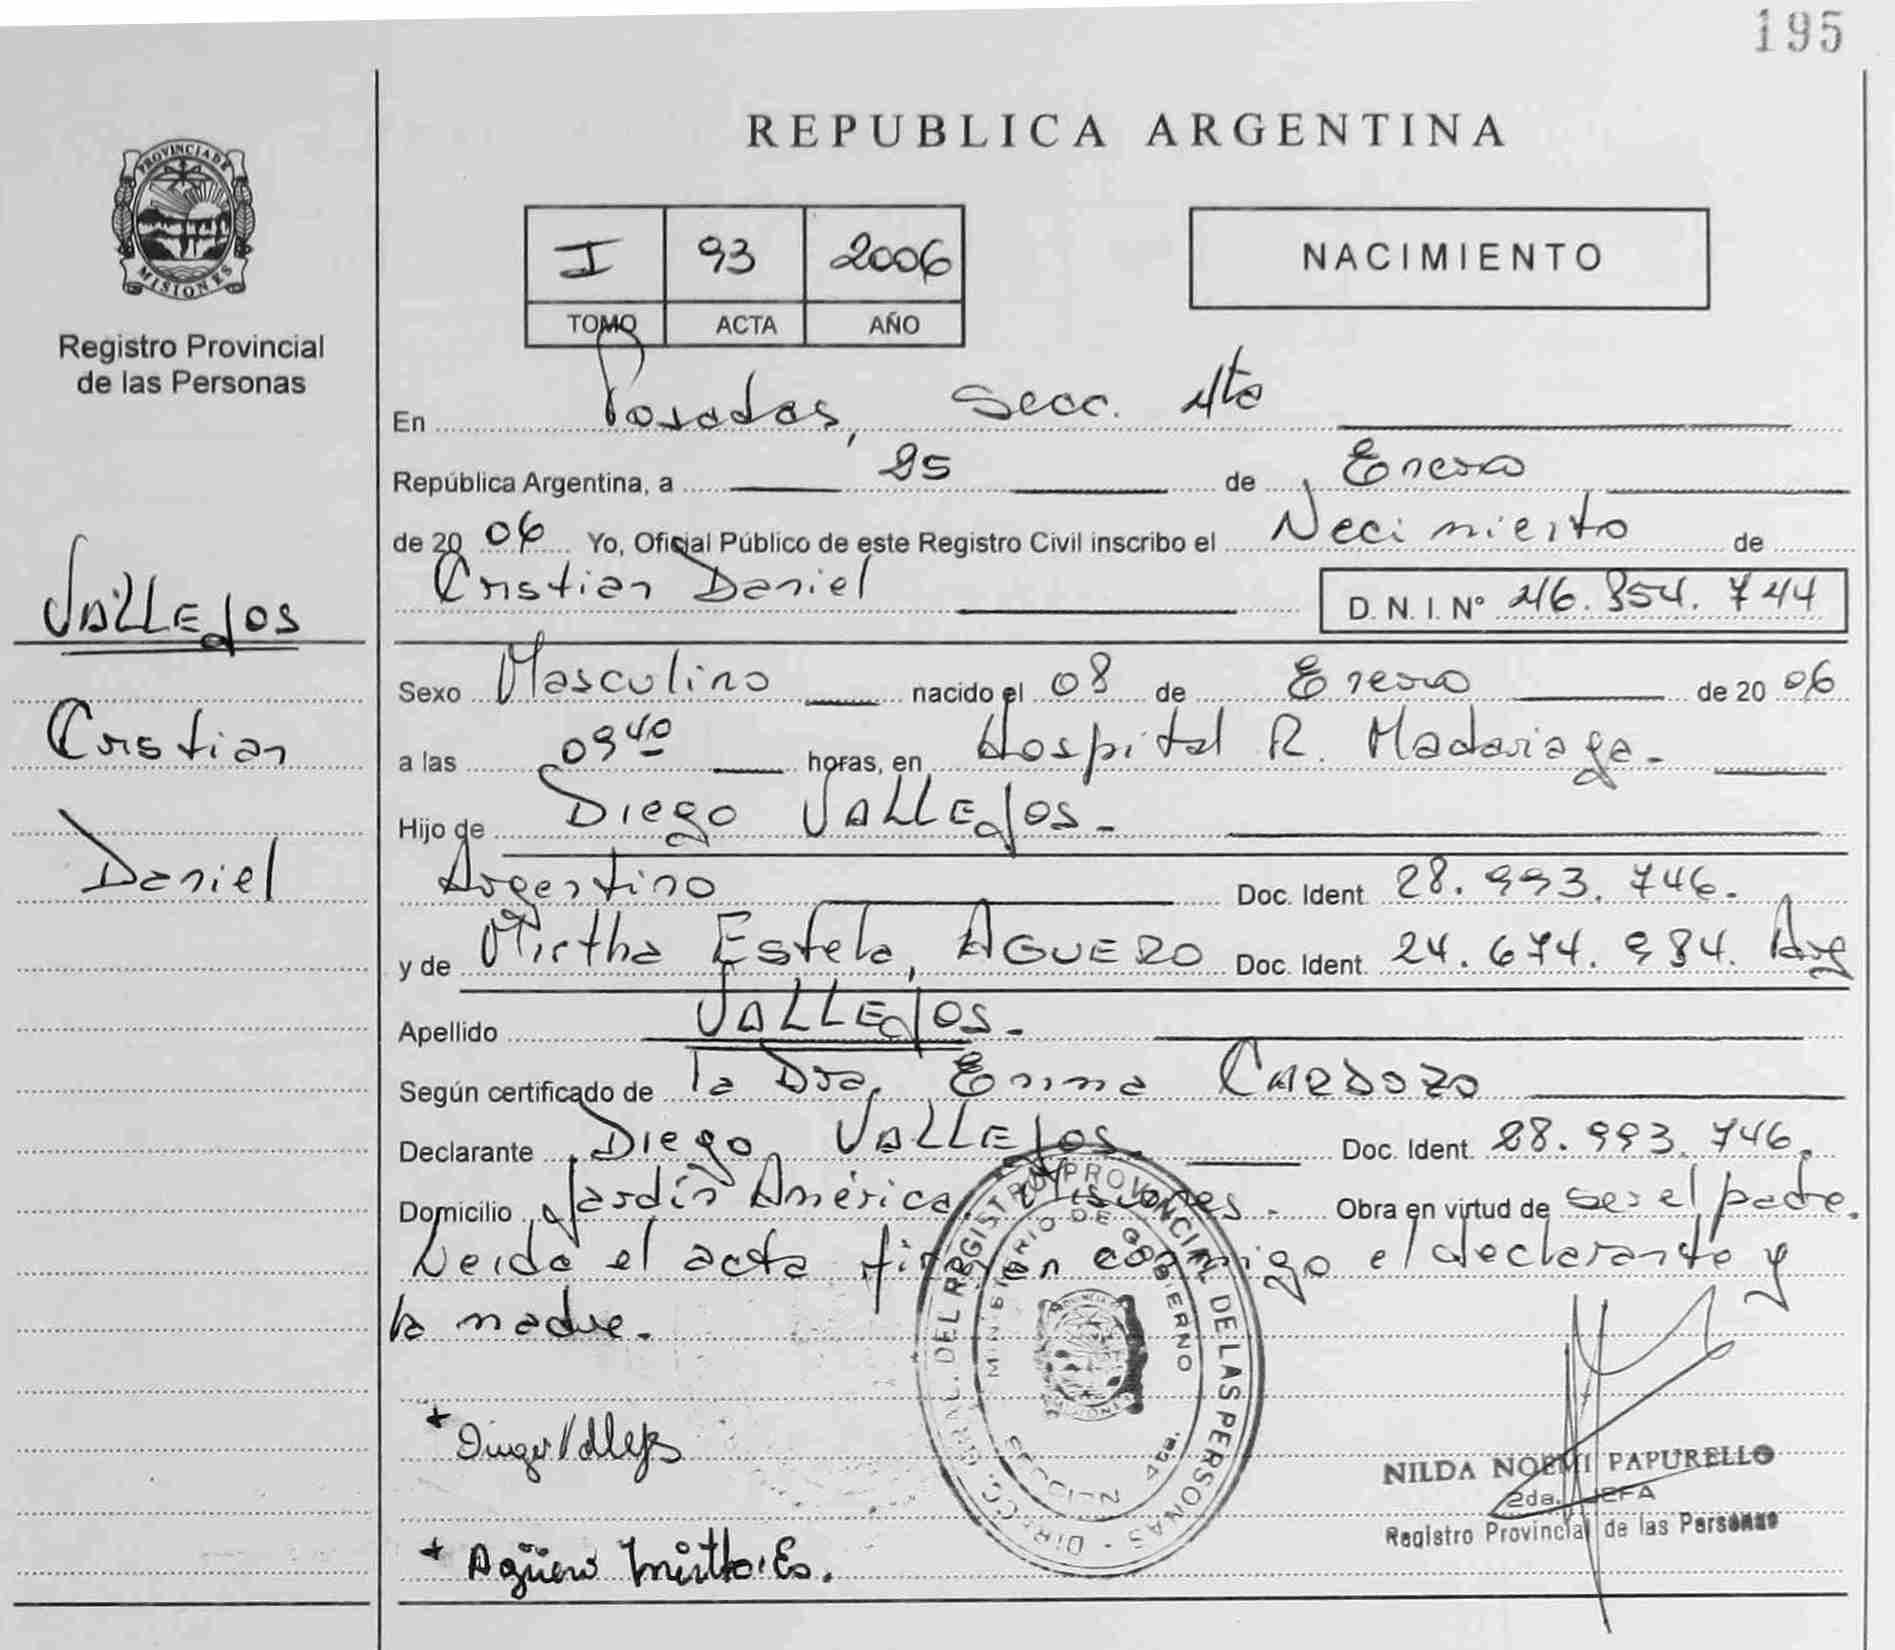 195
PROVINCIA DE
MISIONES
Registro Provincial
de las Personas
VALLEJOS
Cristian
Daniel
REPUBLICA ARGENTINA
I 93 2006
TOMO ACTA AÑO
NACIMIENTO
En Posadas, Secc. 4ta
República Argentina, a 25 de Enero
de 2006 Yo, Oficial Público de este Registro Civil inscribo el Nacimiento de
Cristian Daniel D. N. I. Nº 46.854.744
Sexo Masculino nacido el 08 de Enero de 2006
a las 09 40 horas, en Hospital R. Madariaga.-
Hijo de Diego VALLEJOS.-
Argentino Doc. Ident. 28.993.746.
y de Mirtha Estela, AGUERO Doc. Ident. 24.674.984. Arg
Apellido VALLEJOS.-
Según certificado de la Dra. Emma CARDOZO
Declarante Diego VALLEJOS. Doc. Ident. 28.993.746.
Domicilio Jardín América. Misiones.- Obra en virtud de ser el padre.
Leida el acta firman conmigo el declarante y
la madre.-
DIRECC. GRAL. DEL REGISTRO PROVINCIAL DE LAS PERSONAS
MINISTERIO DE GOBIERNO
+ Diego Vallejos
NILDA NOEMI PAPURELLO
2da. JEFA
Registro Provincial de las Personas
+ Agüero Mirtha Es.